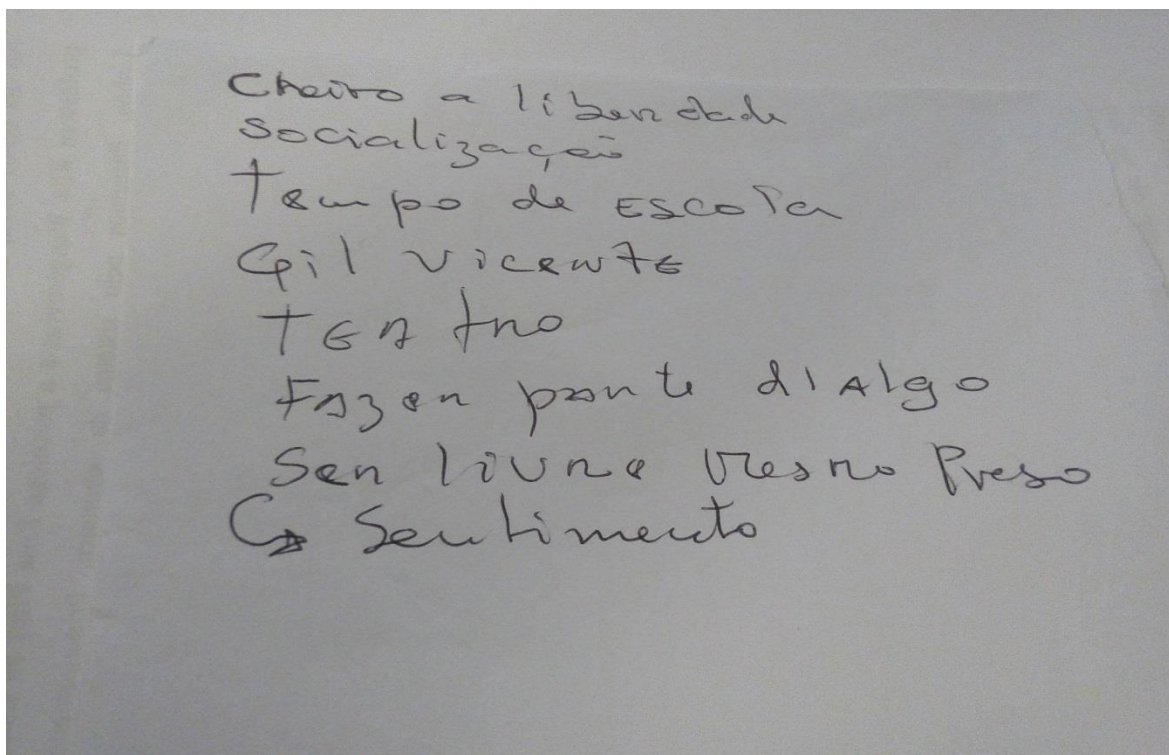 Cheiro a liberdade
Socialização
Tempo de Escola
Gil Vicente
TEATRO
Fazer parte dialgo
Ser livre mesmo Preso
↳ Sentimento